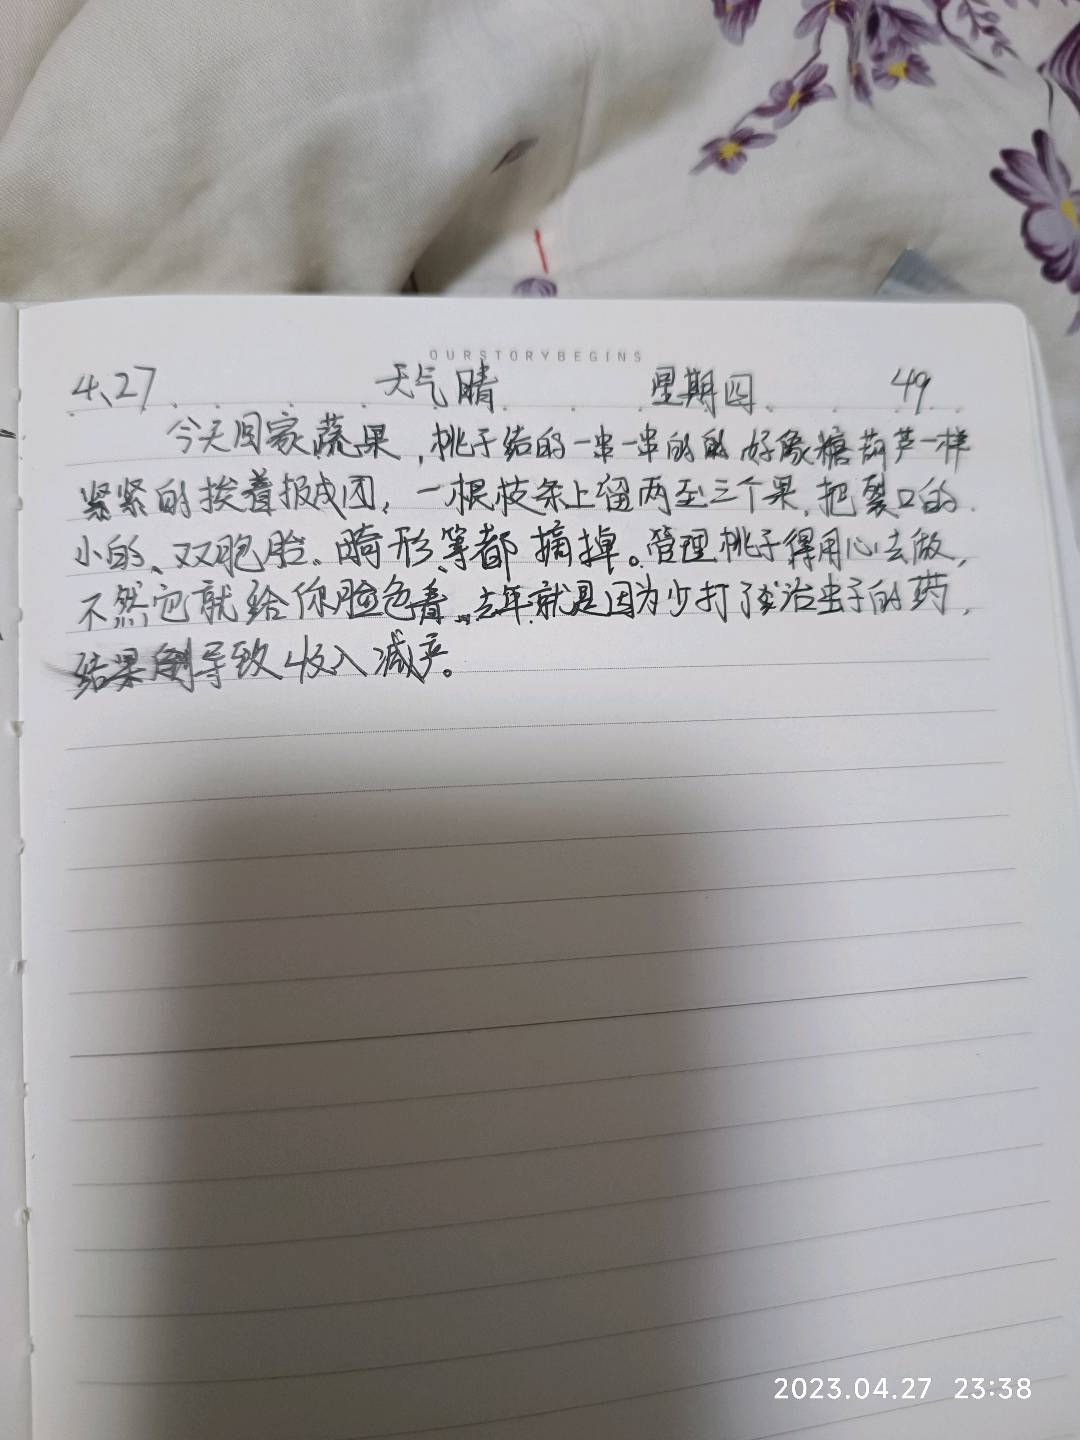 OURSTORYBEGINS
4、27 天气晴 星期四 49
今天回家蔬果,桃子结的一串一串的 好像糖葫芦一样
紧紧的挨着报成团,一根枝条上留两至三个果,把裂口的、
小的、双胞胎、畸形、等都摘掉。管理桃子得用心去做,
不然它就给你脸色看、去年就是因为少打了治虫子的药,
结果导致收入减产。
2023.04.27 23:38